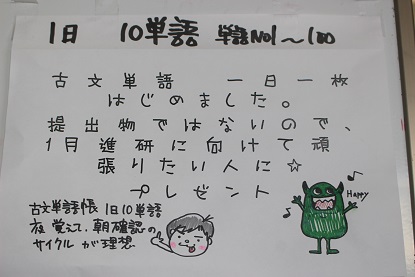 1日 10単語 単語No1〜100
古文単語 一日一枚
はじめました。
提出物ではないので、
1月進研に向けて頑
張りたい人に☆
プレゼント
Happy
古文単語帳 1日10単語
夜覚えて、朝確認の
サイクルが理想